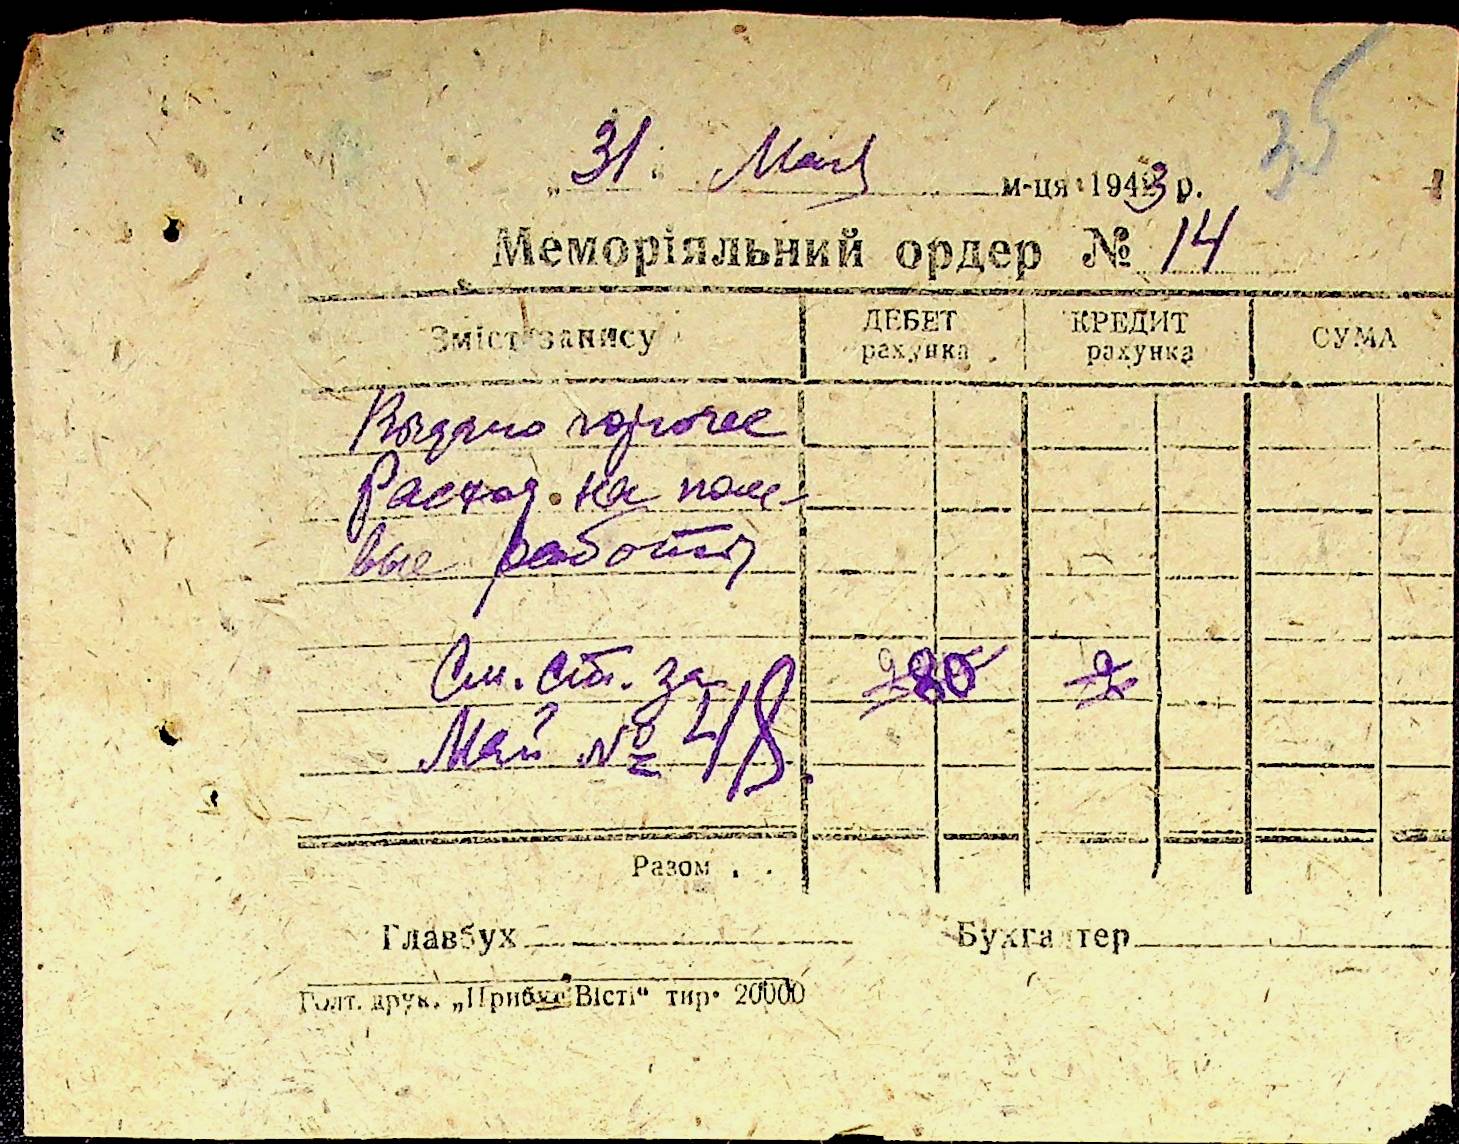 35
„31“ Мая м-ця 1943 р.
Меморіяльний ордер № 14
Зміст запису ДЕБЕТ рахунка КРЕДИТ рахунка СУМА
Выдано горючее
Расход. на поле-
вые работы
См. ст. за 280 2
Май № 48.
Разом . .
Главбух Бухгалтер
Голт. друк. „Прибуз Вісті“ тир. 20000